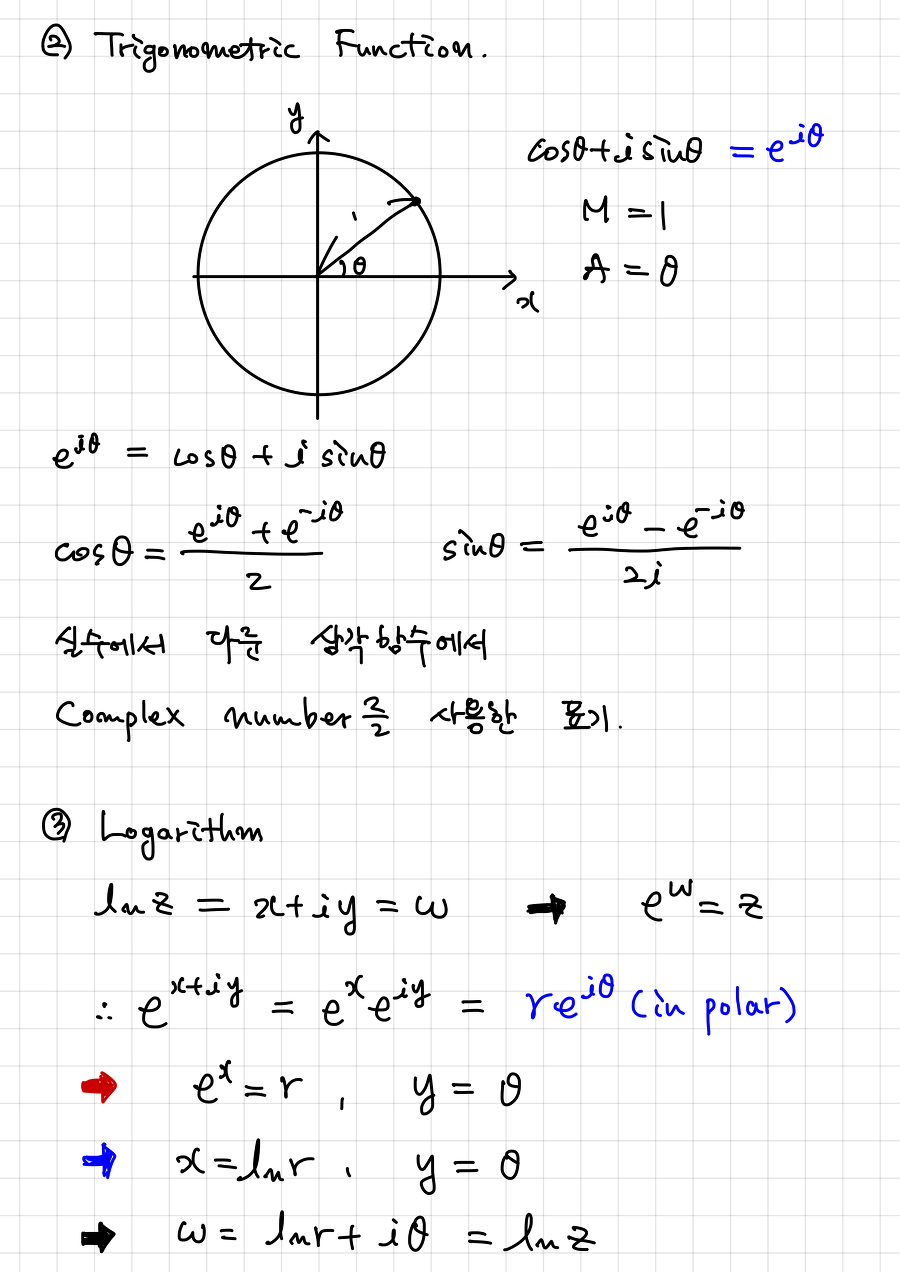 ② Trigonometric Function.
y
cosθ+i sinθ = e^{iθ}
M = 1
1
A = θ
θ
x
e^{iθ} = cosθ + i sinθ
cosθ = \frac{e^{iθ} + e^{-iθ}}{2} sinθ = \frac{e^{iθ} - e^{-iθ}}{2i}
실수에서 다룬 삼각함수에서
Complex number를 사용한 표기.
③ Logarithm
ln z = x+iy = w → e^w = z
∴ e^{x+iy} = e^x e^{iy} = re^{iθ} (in polar)
→ e^x = r , y = θ
→ x = ln r , y = θ
→ w = ln r + iθ = ln z